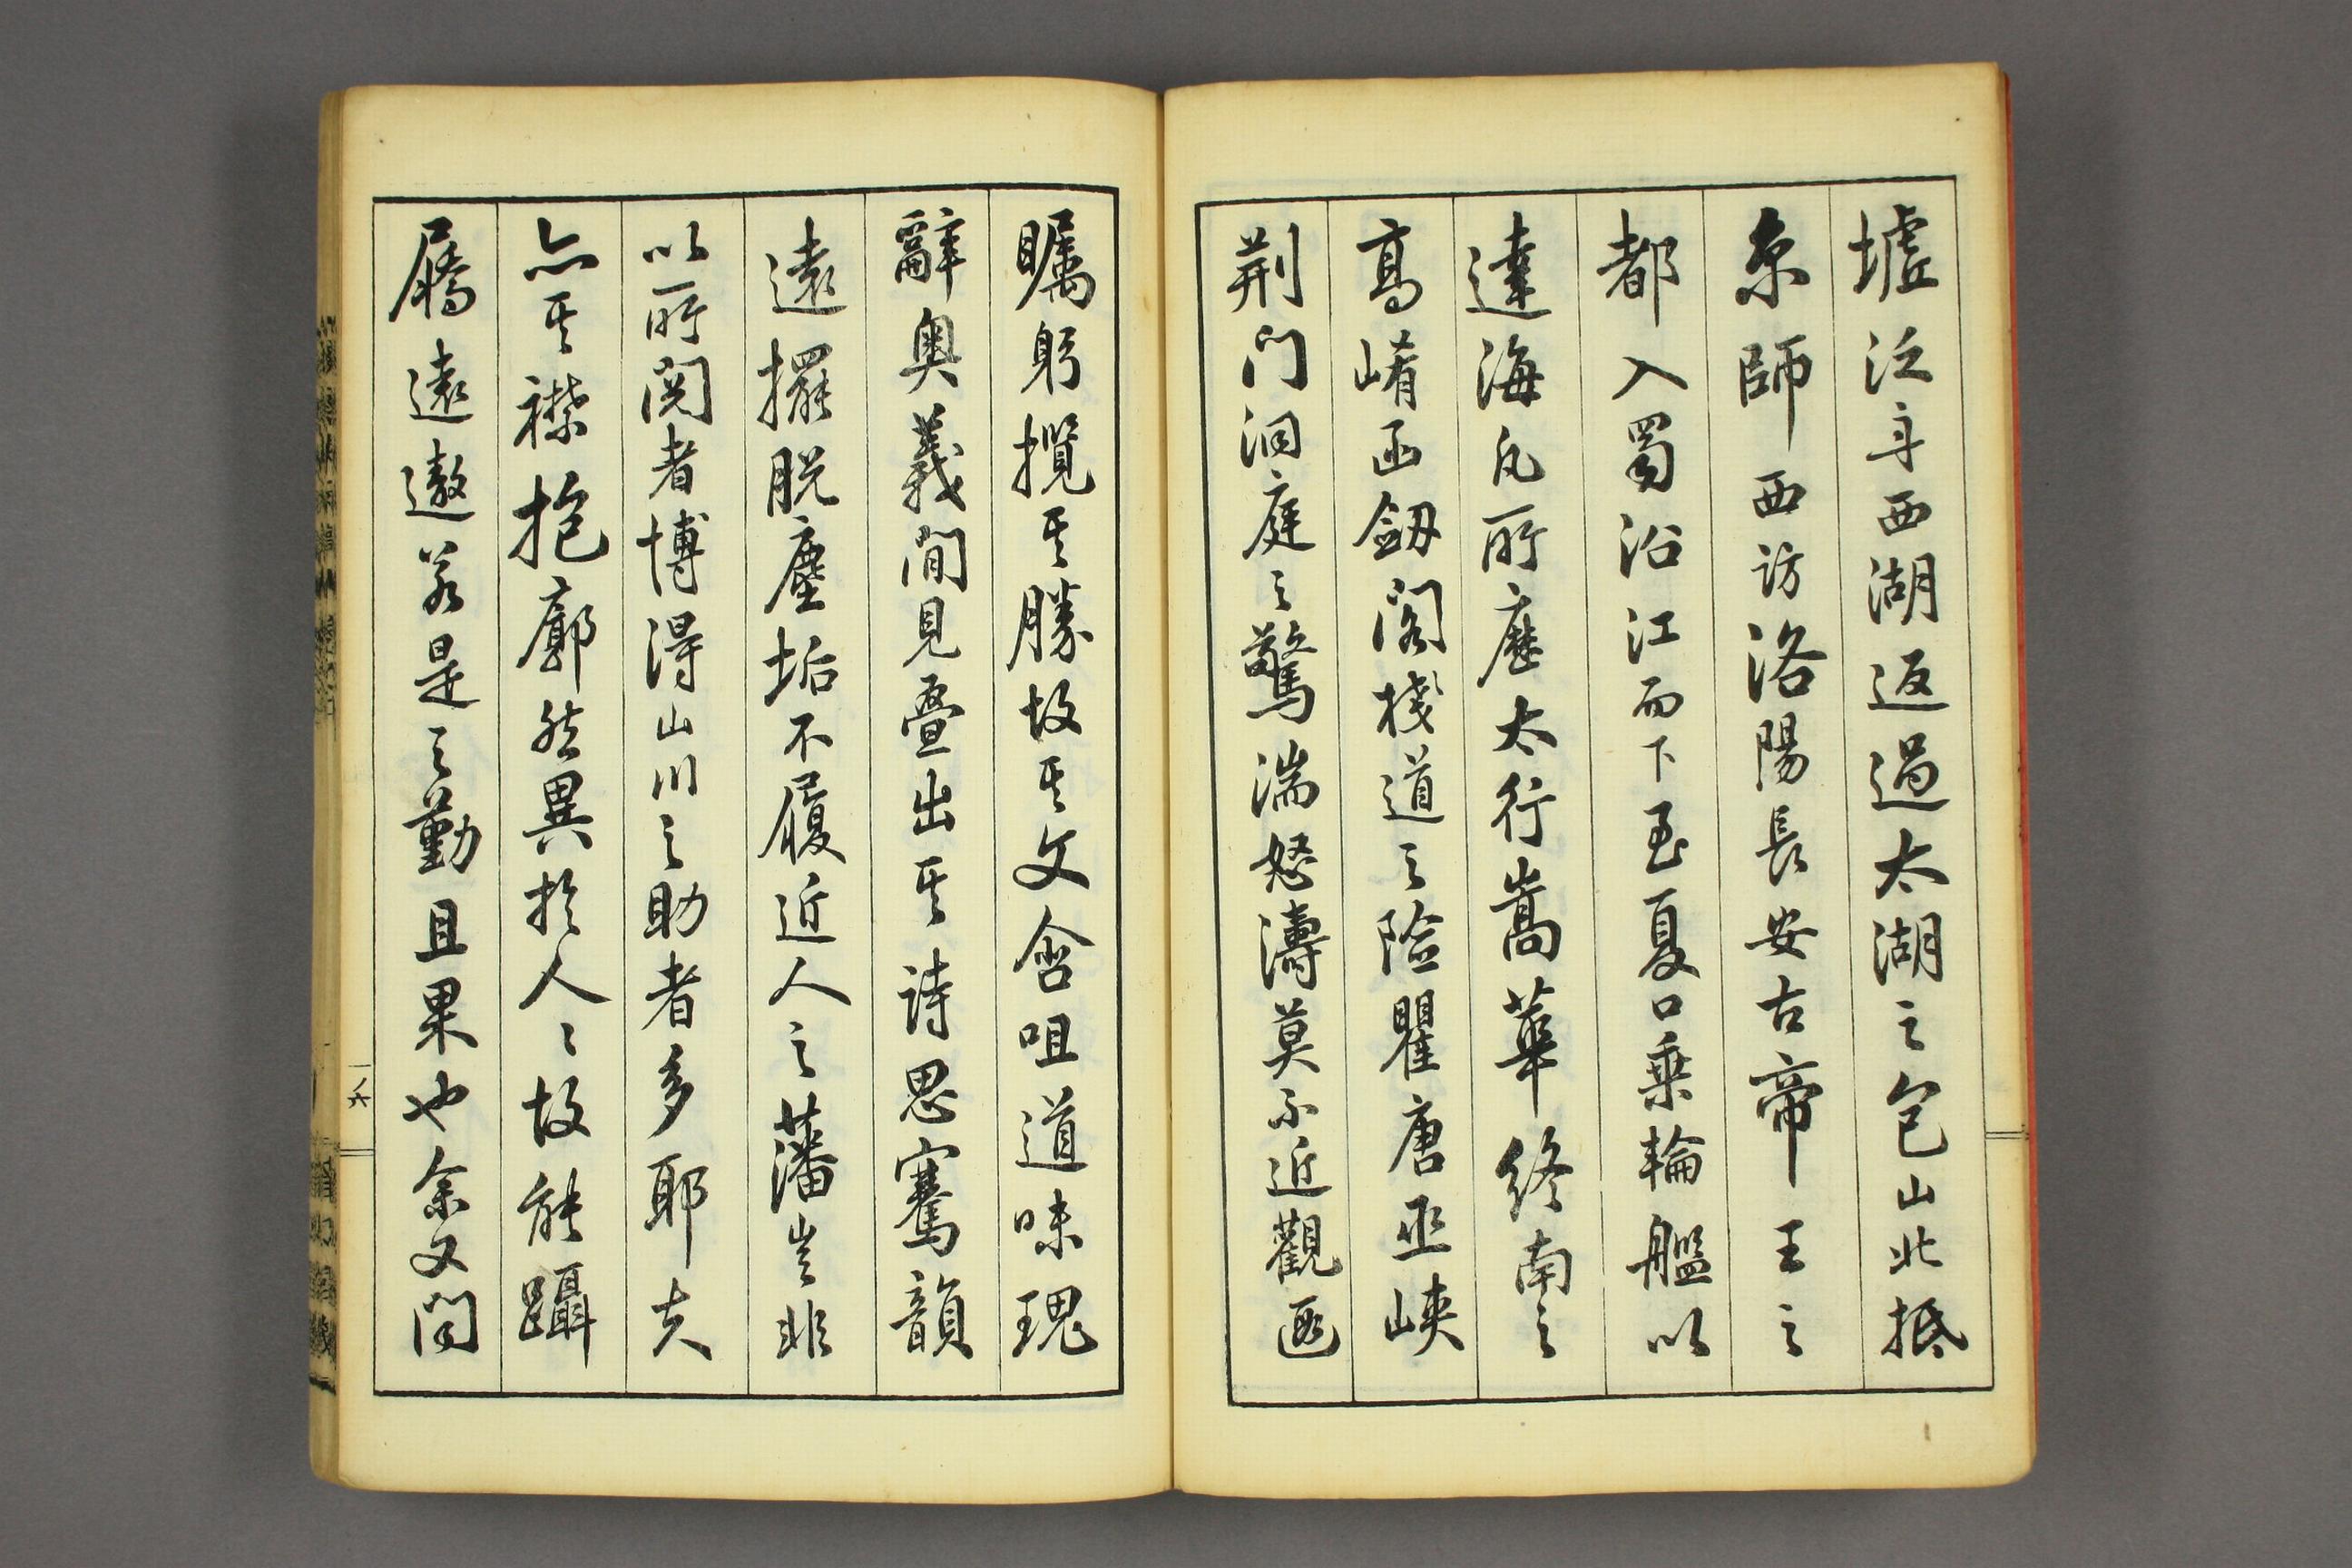 墟泛舟西湖返過太湖之包山北抵
京師西訪洛陽長安古帝王之
都入蜀沿江而下至夏口乗輪艦以
達海凡所歷太行嵩華終南之
高崤函劒閣棧道之險瞿唐巫峽
荆門洞庭之驚湍怒濤莫不近觀遐
矚躬攬其勝故其文含咀道味瑰
辭奥義間見疊出其詩思騫韻
遠擺脱塵垢不履近人之藩豈非
以所閲者博得山川之助者多耶夫
亦其襟抱廓然異於人人故能躡
屩遠遨若是之勤且果也余又聞
十八